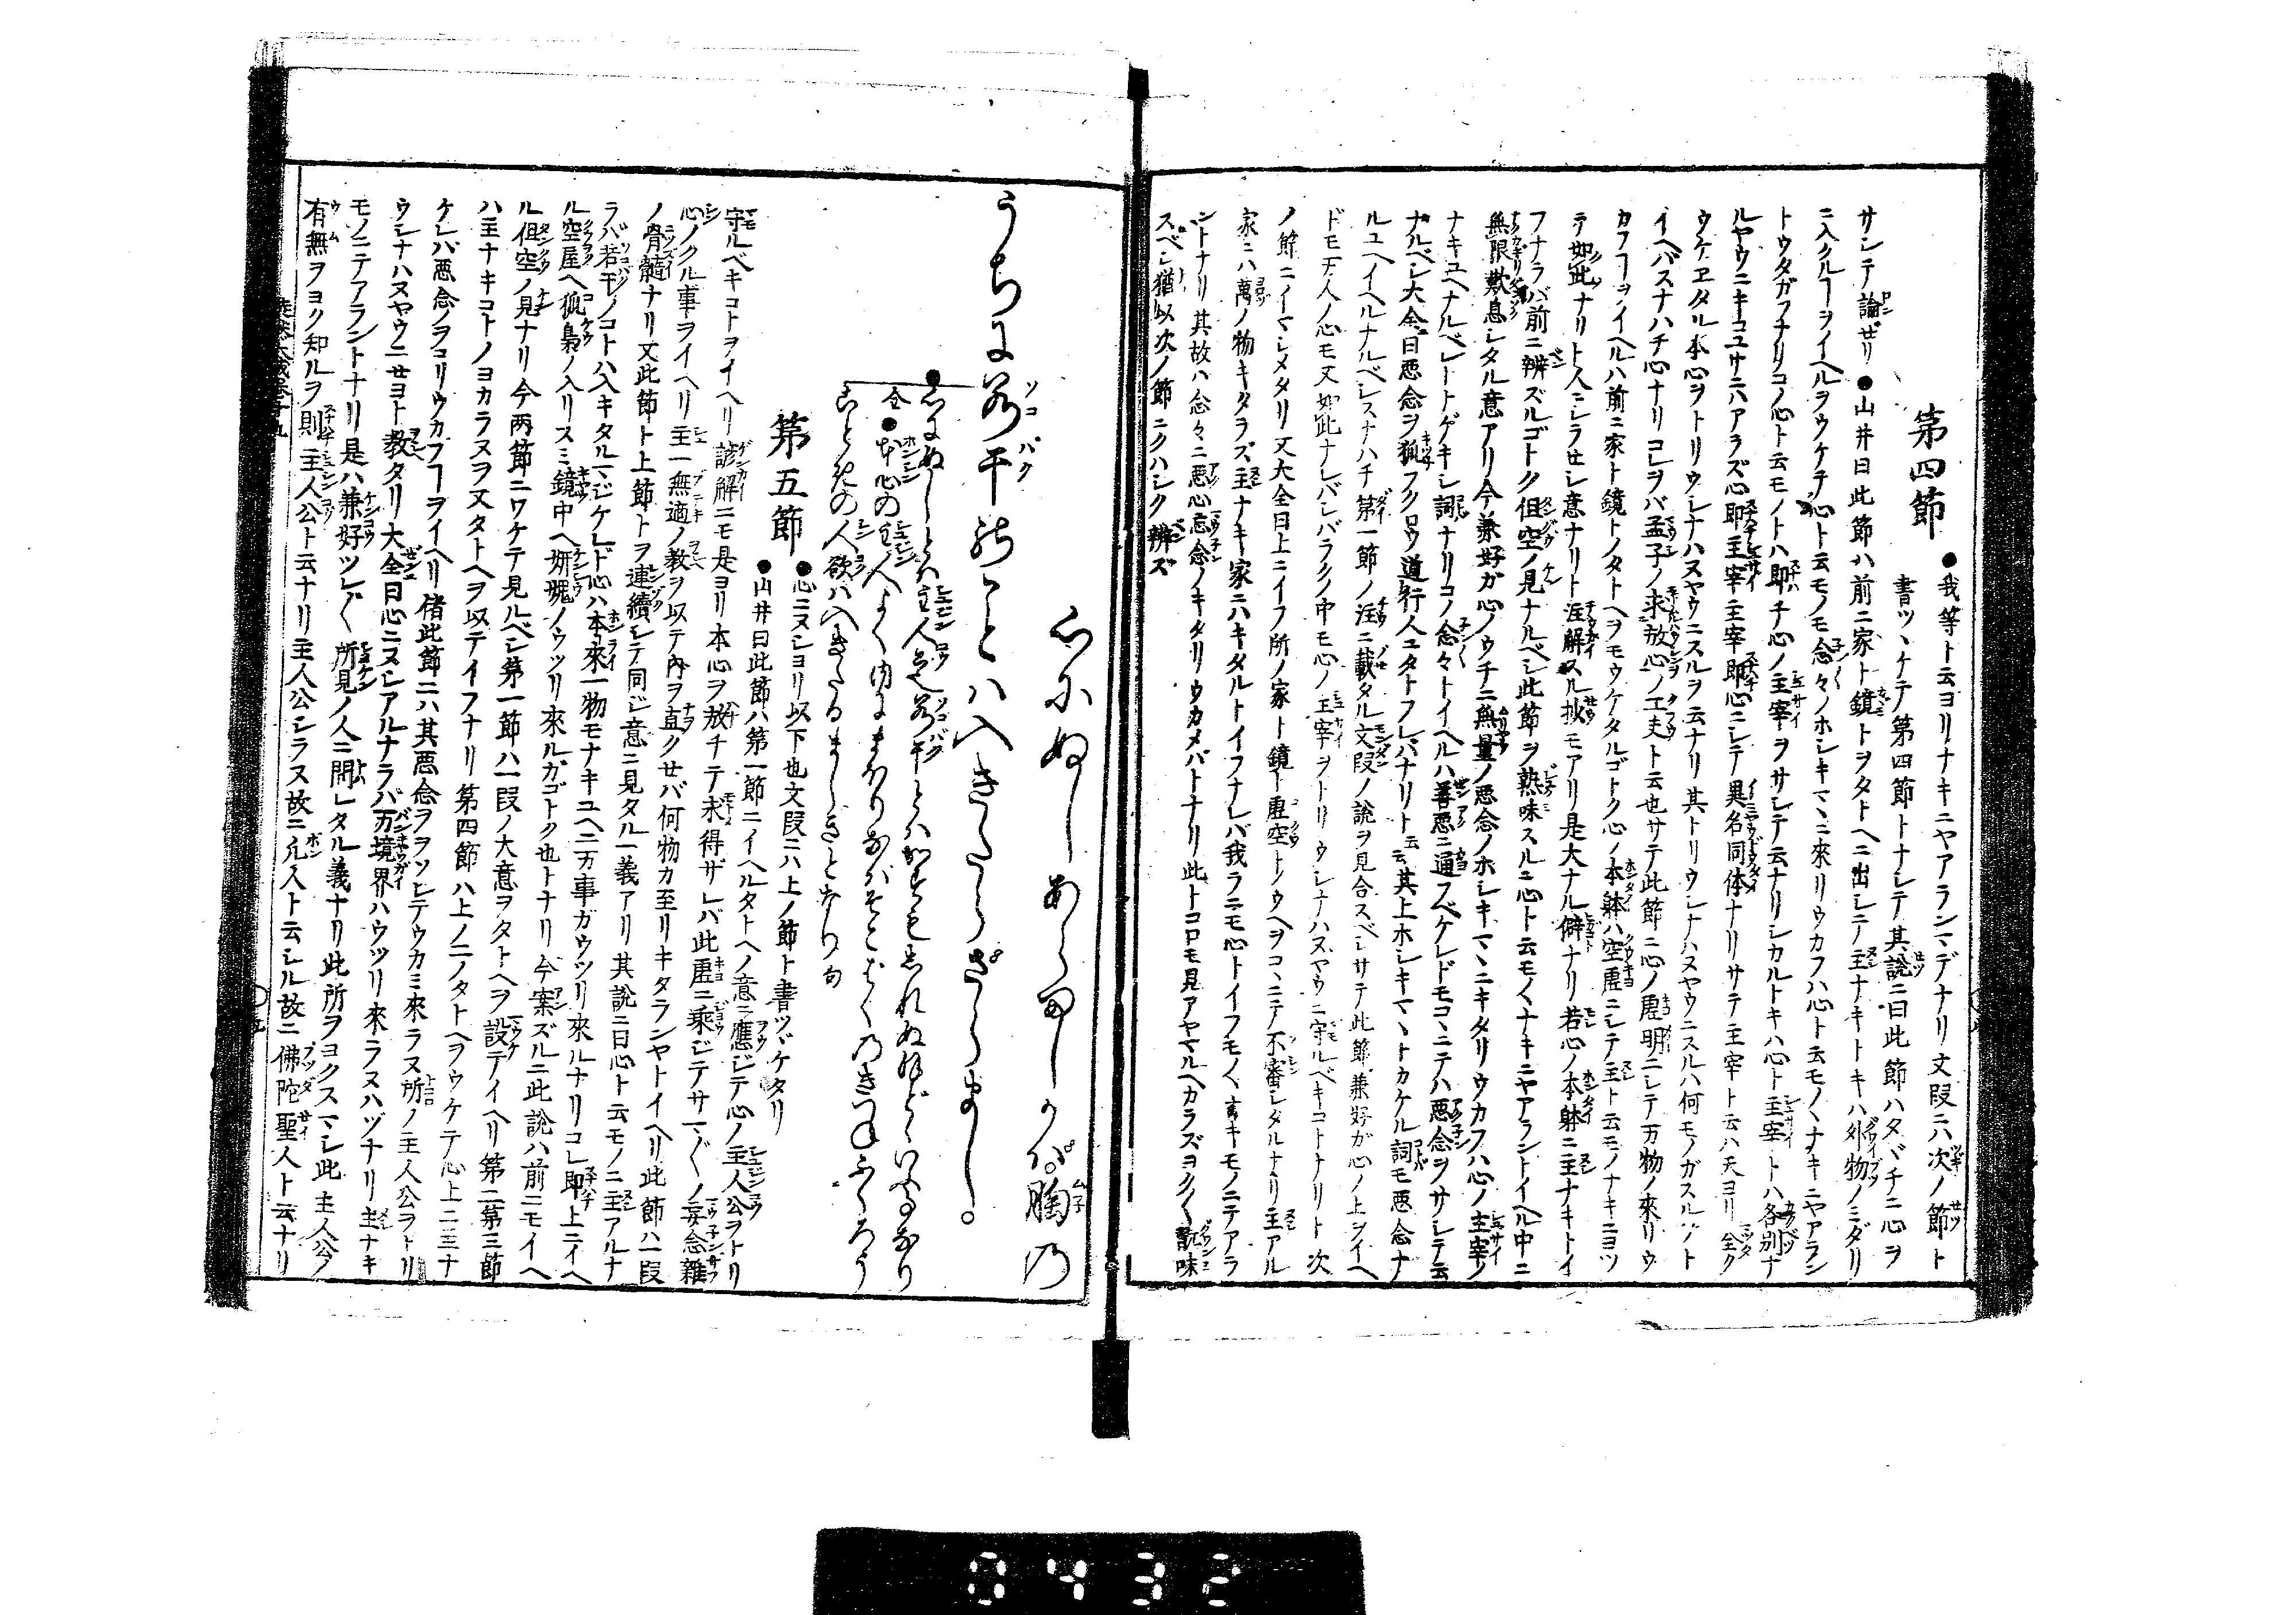 第四節
●我等ト云ヨリナキニヤアランマデナリ文段ニハ次ノ節ト
書ツヾケテ第四節トナシテ其説ニ曰此節ハタヾチニ心ヲ
サシテ論ゼリ●山井曰此節ハ前ニ家ト鏡トヲタトヘニ出シテ主ナキトキハ外物ノミダリ
ニ入クルヿヲイヘルヲウケテ心ト云モノモ念々ノホシキマヽニ來リウカフハ心ト云モノヽナキニヤアラン
トウタガフナリコノ心ト云モノトハ即チ心ノ主宰ヲサシテ云ナリシカルトキハ心ト主宰トハ各別ナ
ルヤウニキコユサニハアラズ心即主宰主宰即心ニシテ異名同体ナリサテ主宰ト云ハ天ヨリ全ク
ウケヱタル本心ヲトリウシナハヌヤウニスルヲ云ナリ其トリウシナハヌヤウニスルハ何モノガスルゾト
イヘバスナハチ心ナリコレヲバ孟子ノ求放心ノ工夫ト云也サテ此節ニ心ノ虚明ニシテ万物ノ來リウ
カフヿヲイヘルハ前ニ家ト鏡トノタトヘヲモウケタルゴトク心ノ本躰ハ空虚ニシテ主ト云モノナキニヨツ
テ如此ナリト人ニシラセシ意ナリト注解スル抄モアリ是大ナル僻ナリ若心ノ本躰ニ主ナキトイ
フナラバ前ニ辨ズルゴトク但空ノ見ナルベシ此節ヲ熟味スルニ心ト云モノヽナキニヤアラントイヘル中ニ
無限歎息シタル意アリ今兼好ガ心ノウチニ無量ノ悪念ノホシキマヽニキタリウカフハ心ノ主宰ノ
ナキユヘナルベシトナゲキシ詞ナリコノ念々トイヘルハ善悪ニ通フベケレドモコヽニテハ悪念ヲサシテ云
ナルベシ大全曰悪念ヲ狐フクロウ道行人ニタトフレバナリト云云其上ホシキマヽトカケル詞モ悪念ナ
ルユヘイヘルナルベシスナハチ第一節ノ注ニ載タル文段ノ説ヲ見合スベシサテ此節兼好ガ心ノ上ヲイヘ
ドモ天人ノ心モ又如此ナレバシバラクノ中モ心ノ主宰ヲトリウシナハヌヤウニ守ルベキコトナリト次
ノ節ニイマシメタリ又大全曰上ニイフ所ノ家ト鏡ト虚空トノウヘヲコヽニテ不審シタルナリ主アル
家ニハ萬ノ物キタラズ主ナキ家ニハキタルトイフナレバ我ラニモ心トイフモノヽナキモノニテアラ
ントナリ其故ハ念々ニ悪心忘念ノキタリウカメバトナリ此トコロモ見アヤマルヘカラズヨク〳〵翫味
スベシ猶以次ノ節ニクハシク辨ズ
心にぬしあらましかバ。胸の
うちに若干のことハ入きたらざらまし。
●心にぬしとハ主人公也若干とハかずもしれぬほどゝいふ心なり
全●本心の主人よく内にまもりなバそこばくのきつねふくろう
ことたの人欲ハ入きたるまじきと云々
第五節
●心ニヌシヨリ以下也文段ニハ上ノ節ト書ツヾケタリ
●山井曰此節ハ第一節ニイヘルタトヘノ意ニ應ジテ心ノ主人公ヲトリ
守ルベキコトヲイヘリ諺解ニモ是ヨリ本心ヲ放チテ未得ザレバ此虚ニ乗ジテサマ〴〵ノ妄念雜
心ノクル事ヲイヘリ主一無適ノ教ヲ以テ内ヲ直クセバ何物カ至リキタランヤトイヘリ此節ハ一段
ノ骨髓ナリ又此節ト上節トヲ連續シテ同ジ意ニ見タル一義アリ其説ニ曰心ト云モノニ主アルナ
ラバ若干ノコトハ入キタルマジケレド心ハ本來一物モナキユヘニ万事ガウツリ來ルナリコレ即上ニイヘ
ル空屋ヘ狐梟ノ入リスミ鏡中ヘ妍醜ノウツリ來ルガゴトク也トナリ今案ズルニ此説ハ前ニモイヘ
ル但空ノ見ナリ今両節ニワケテ見ルベシ第一節ハ一段ノ大意ヲタトヘヲ設テイヘリ第二第三節
ハ主ナキコトノヨカラヌヲ又タトヘヲ以テイフナリ第四節ハ上ノ二ノタトヘヲウケテ心上ニ主ナ
ケレバ悪念ノヲコリウカフヿヲイヘリ偖此節ニハ其悪念ヲヲソレテウカミ來ラヌ所ノ主人公ヲトリ
ウシナハヌヤウニセヨト教タリ大全曰心ニヌシアルナラバ万境界ハウツリ來ラヌハヅナリ主ナキ
モノニテアラントナリ是ハ兼好ツレ〴〵所見ノ人ニ問レタル義ナリ此所ヲヨクスマシ此主人公
有無ヲヨク知ルヲ則主人公ト云ナリ主人公シラヌ故ニ凡人ト云シル故ニ佛陀聖人ト云ナリ
0432